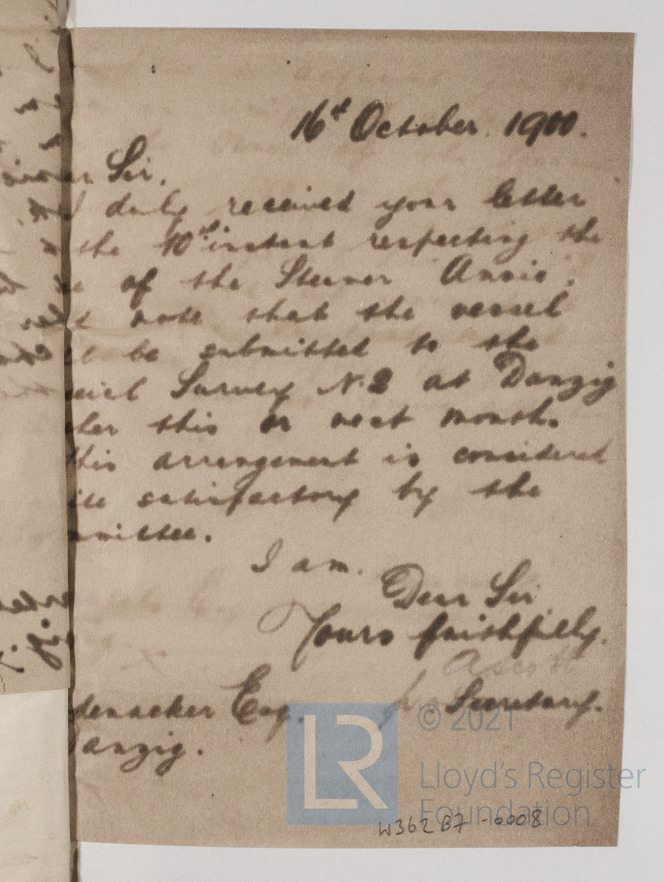 16th October 1900.
Sir,
duly received your letter
the 10th instant respecting the
of the Steamer "Annie",
note that the vessel
be submitted to the
Survey No. 2 at Danzig
this or next month.
this arrangement is considered
satisfactory by the
mittee.
I am.
Dear Sir
Yours faithfully.
denacker Esq.
Secretary.
anzig.
LR
© 2021
Lloyd's Register
Foundation
W362 B7 -0008